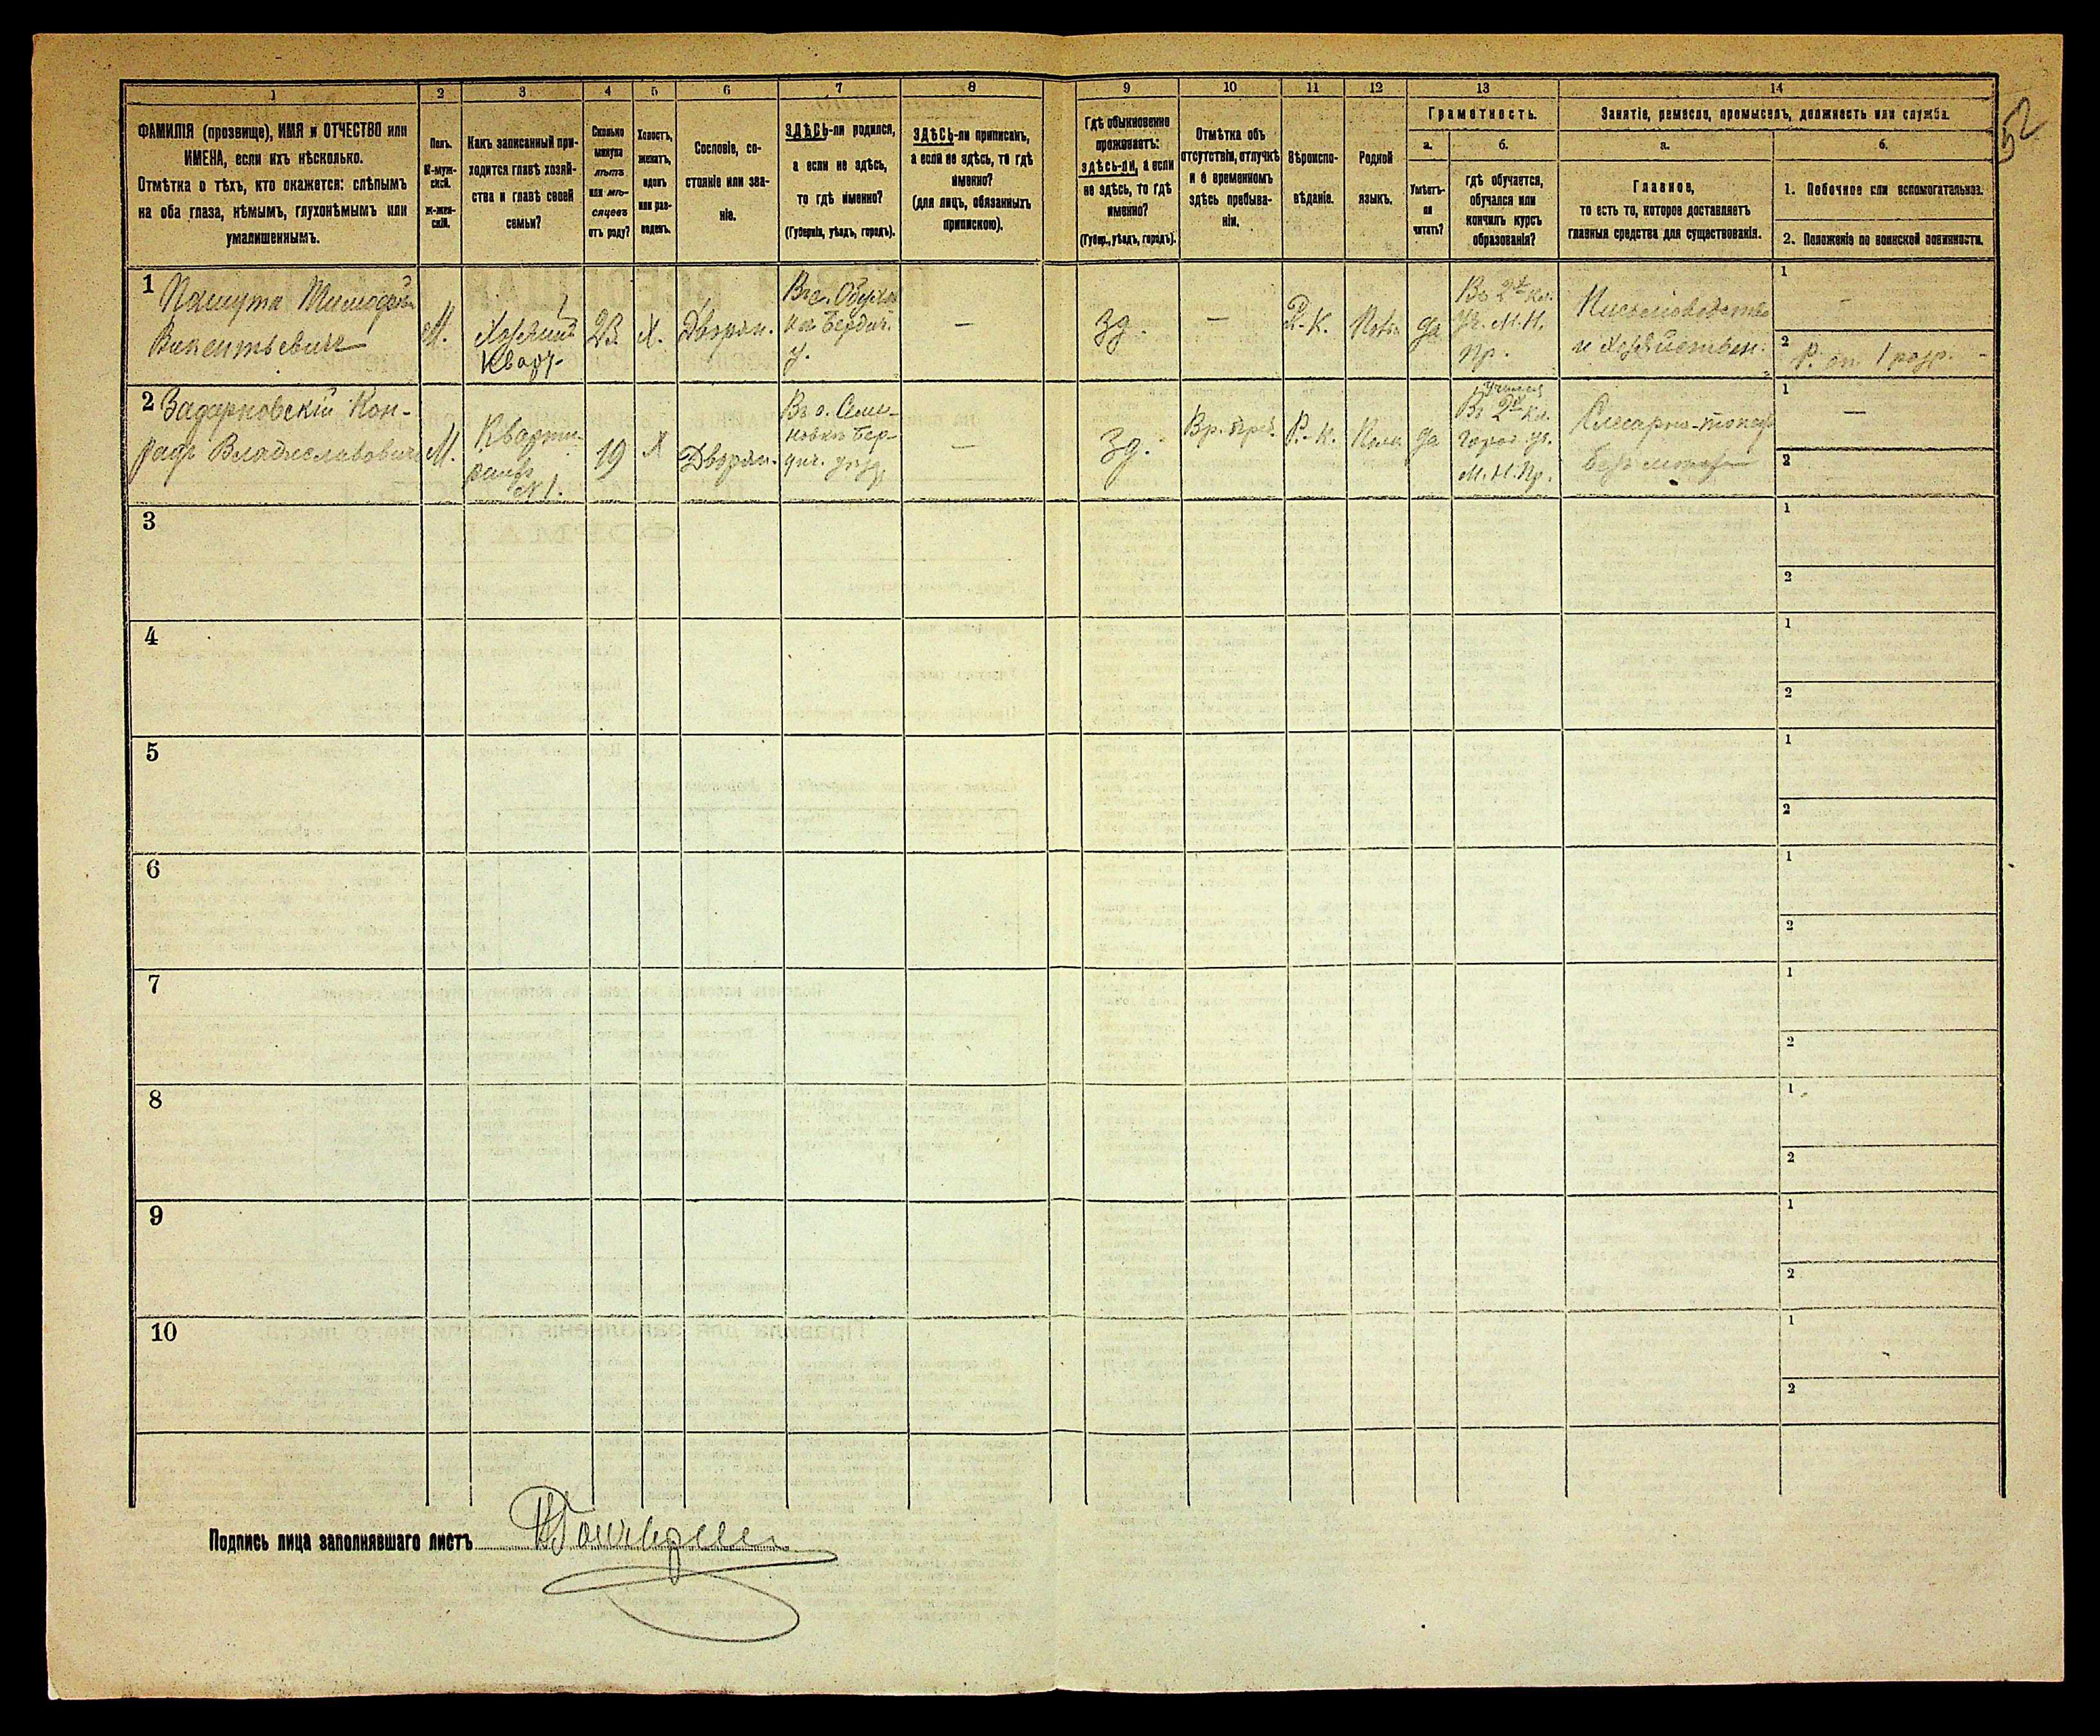 1 2 3 4 5 6 7 8 9 10 11 12 13 14
52
ФАМИЛІЯ (прозвище), ИМЯ и ОТЧЕСТВО или
ИМЕНА, если ихъ нѣсколько.
Отмѣтка о тѣхъ, кто окажется: слѣпымъ
на оба глаза, нѣмымъ, глухонѣмымъ или
умалишеннымъ.
Полъ.
М-муж-
ской.
Ж-жен-
скій.
Какъ записанный при-
ходится главѣ хозяй-
ства и главѣ своей
семьи?
Сколько
минуло
лѣтъ
или мѣ-
сяцевъ
отъ роду?
Холостъ,
женатъ,
вдовъ
или раз-
веденъ.
Сословіе, со-
стояніе или зва-
ніе.
ЗДѢСЬ-ли родился,
а если не здѣсь,
то гдѣ именно?
(Губернія, уѣздъ, городъ).
ЗДѢСЬ-ли приписанъ,
а если не здѣсь, то гдѣ
именно?
(для лицъ, обязанныхъ
припискою).
Гдѣ обыкновенно
проживаетъ:
здѣсь-ли, а если
не здѣсь, то гдѣ
именно?
(Губер., уѣздъ, городъ).
Отмѣтка объ
отсутствіи, отлучкѣ
и о временномъ
здѣсь пребыва-
ніи.
Вѣроиспо-
вѣданіе.
Родной
языкъ.
Грамотность.
а.
Умѣетъ-
ли
читать?
б.
гдѣ обучается,
обучался или
кончилъ курсъ
образованія?
Занятіе, ремесло, промыселъ, должность или служба.
а.
Главное,
то есть то, которое доставляетъ
главныя средства для существованія.
б.
1. Побочное или вспомогательное.
2. Положеніе по воинской повинности.
1
Викентьевичъ
М.
Хозяинъ
кварт.
23
Х.
Дворян.
Бердич.
у.
—
Зд.
—
Р.-К.
да
Въ 2х кл.
Уч. М. Н.
Пр.
1
—
2
Р. оп. 1 разр.
2 Задарновскій Кон-
радъ Владиславовичъ
М.
Кварти-
рантъ
№ 1.
19
Х
Дворян.
Въ с. Семе-
новкѣ Бер-
дич. уѣзд.
—
Зд.
Вр. преб.
Р.-К.
Поль
да
Въ 2х кл.
город. уч.
М. Н. Пр.
Слесарно-токар
1
—
2
3
1
2
4
1
2
5
1
2
6
1
2
7
1
2
8
1
2
9
1
2
10
1
2
Подпись лица заполнявшаго листъ